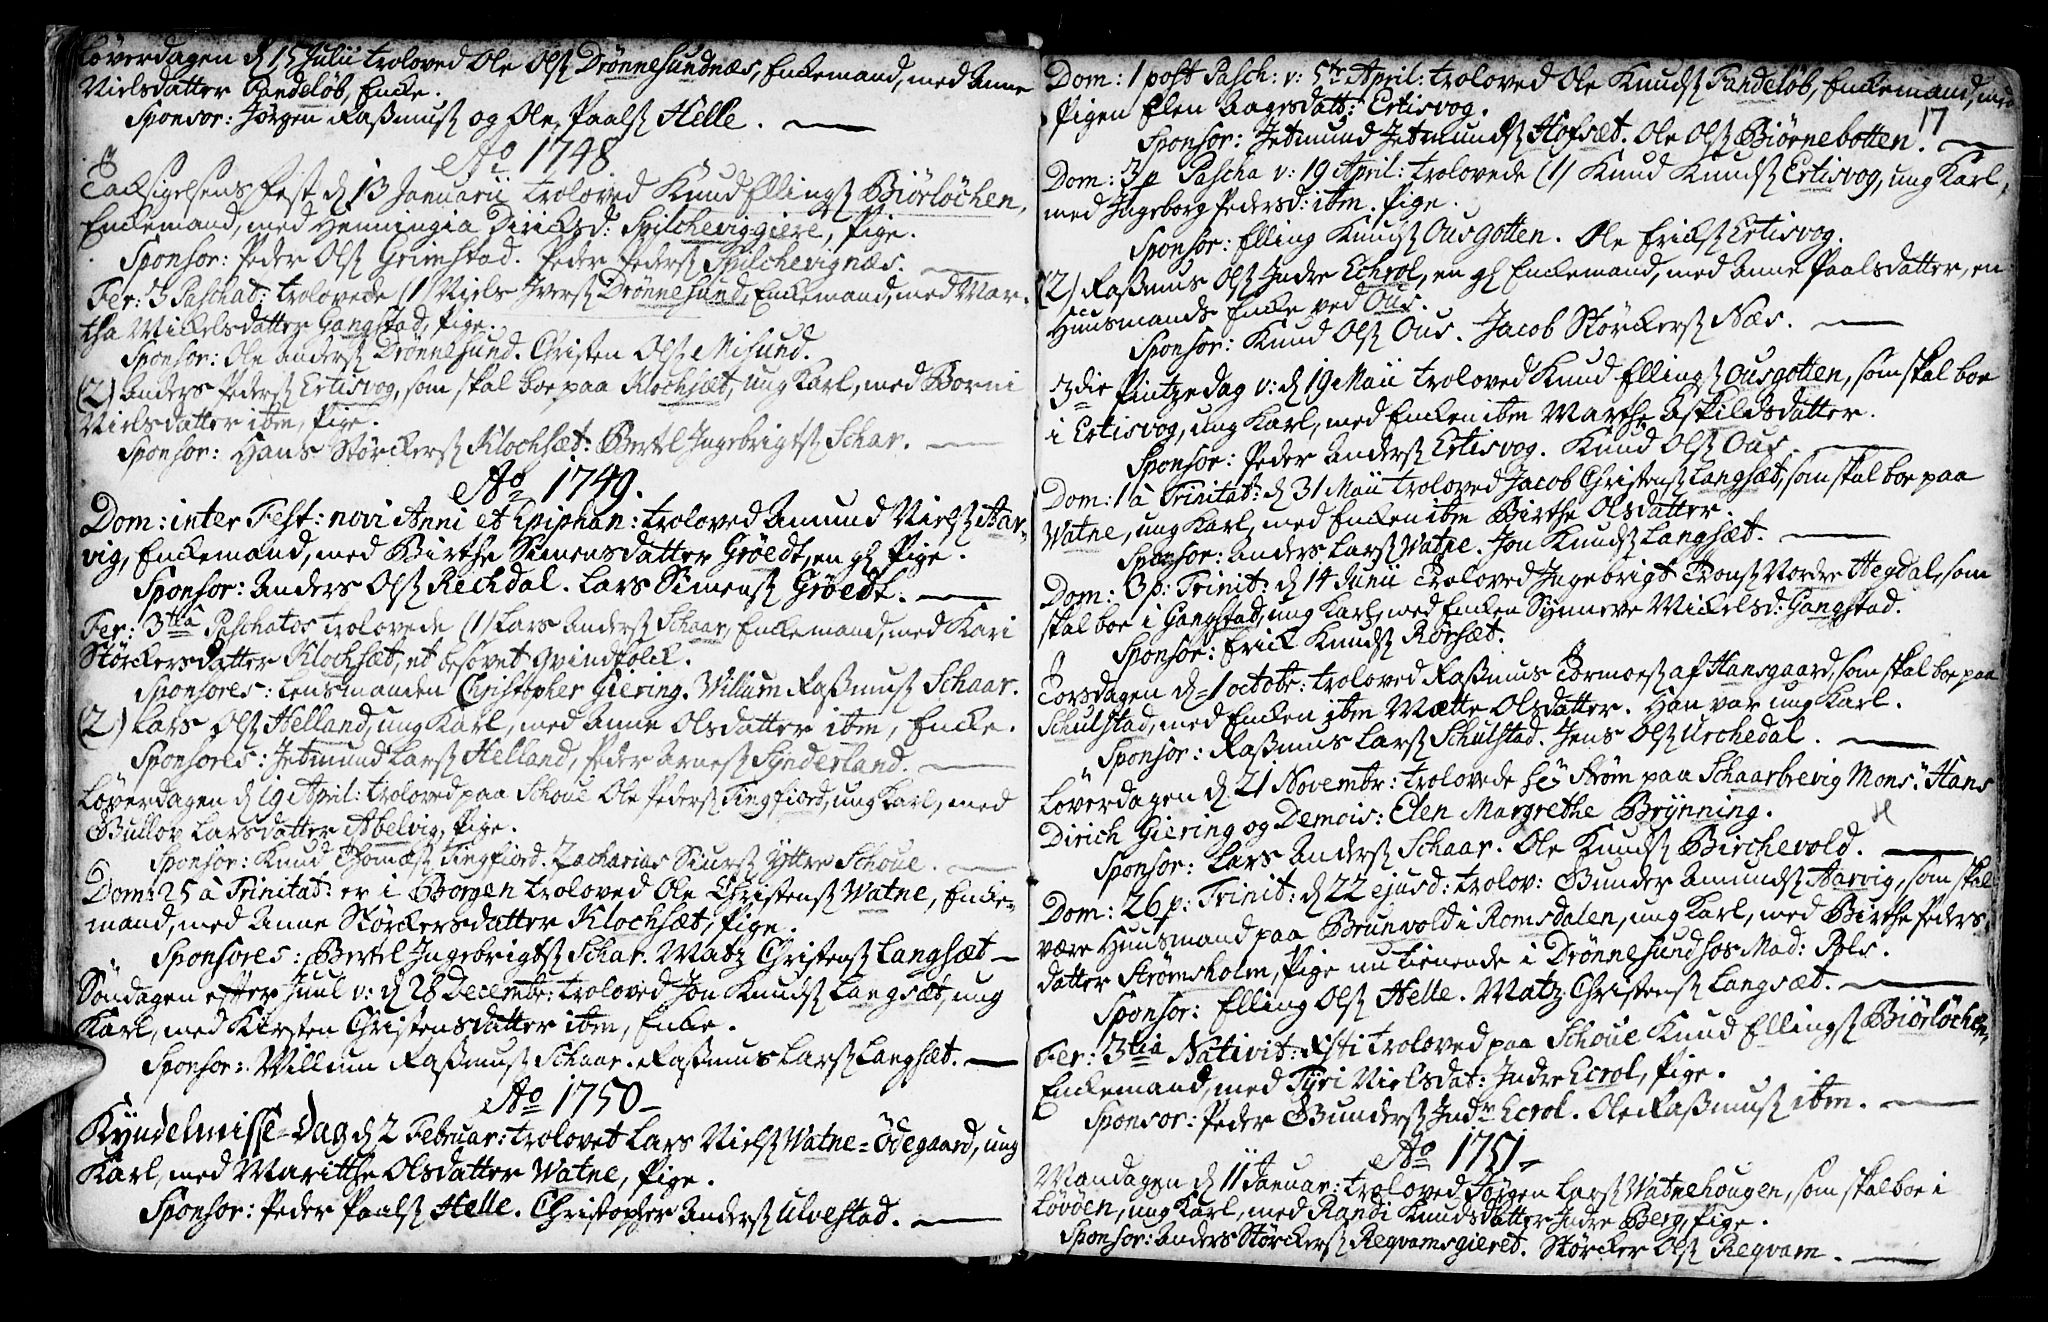 Løverdagen d 15 Julii troloved Ole Olsß Drønnesundnæs, Enkemand, med Anne
Nielsdatter Sandeløb, Encke.
Sponsor: Jørgen Raßmusß og Ole Paalsß Helle.
Ao 1748
Tacksigelsens Fest d 13 Januarii troloved Knud Ellingsß Biørløchen,
Enckemand, med Henningia Diricksd: Spilcheviggiere, Pige.
Sponsor: Peder Olsß Grimstad. Peder Pedersß Spilchevignæs.
Fer: 3 Paschat: trolovede (1) Niels Iversß Drønnesund, Enckemand, med Mar-
tha Mickelsdatter Gangstad, Pige.
Sponsor: Ole Andersß Drønnesund. Christen Olsß Misund.
(2) Anders Pedersß Ertisvog, som skal boe paa Klochsæt, ung Karl, med Borni
Nielsdatter ibm, Pige.
Sponsor: Hans Størckersß Klochsæt: Bertel Ingebrigtsß Schar.
Ao 1749.
Dom: inter Fest: novi Anni et Epiphan: troloved Amund Nielsß Aar-
vig, Enckemand, med Birthe Simensdatter Grøedt, en gl Pige.
Sponsor: Anders Olsß Rechdal. Lars Simensß Grøedt.
Fer: 3tia Paschatos trolovede (1) Lars Andersß Schaar, Enckemand, med Kari
Størckersdatter Klochsæt, et besovet Qvindfolck.
Sponsores: Lensmanden Christopher Giering. Willum Raßmusß Schaar.
(2) Lars Olsß Helland, ung Karl, med Anne Olsdatter ibm, Encke.
Sponsores: Jetmund Larsß Helland, Peder Arnesß Synderland.
Løverdagen d 19 April: troloved paa Schoue Ole Pedersß Tingfiord, ung Karl, med
Gullov Larsdatter Abelvig, Pige.
Sponsor: Knud Thomæsß Tingfiord. Zacharias Siursß Yttre Schoue.
Dom: 25 à Trinitat: er i Borgen troloved Ole Christensß Watne, Encke-
mand, med Anne Størckersdatter Klochsæt, Pige.
Sponsores: Bertel Ingebrigtsß Schar. Matz Christensß Langsæt
Søndagen efter Juul v: d 28 Decembr: troloved Jon Knudsß Langsæt, ung
Karl, med Kirsten Christensdatter ibm, Enke.
Sponsor: Willum Raßmusß Schaar. Raßmus Larsß Langsæt.
Ao 1750
Kyndelmisse-Dag d 2 Februar: trolovet Lars Nielsß Watne-Ødegaard, ung
Karl, med Maritthe Olsdatter Watne, Pige.
Sponsor: Peder Paalsß Helle. Christopher Andersß Ulvestad.
17
Dom: 1 post Pasch: v: 5te April: troloved Ole Knudsß Sandeløb, Enckemand, med
Pigen Elen Aagesdatt: Ertisvog.
Sponsor: Jetmund Jetmundsß Hofsæt. Ole Olsß Biørnebotten.
Dom: 3 p Pascha v: 19 April: trolovede (1) Knud Knudsß Ertisvog, ung Karl,
med Ingeborg Pedersd: ibm. Pige.
Sponsor: Elling Knudsß Ousgotten. Ole Ericksß Ertisvog.
(2) Raßmus Olsß Indre Echrol, en gl Enckemand, med Anne Paalsdatter, en
Huusmands Encke ved Ous.
Sponsor: Knud Olsß Ous. Jacob Størckersß Næs.
3die Pintzedag v: d 19 Maii troloved Knud Ellingsß Ousgotten, som skal boe
i Ertisvog, ung Karl, med Encken ibm Marthe Eskildsdatter.
Sponsor: Peder Andersß Ertisvog. Knud Olsß Ous.
Dom: 1 à Trinitat: d 31 Maii troloved Jacob Christensß Langsæt, som skal boe paa
Watne, ung Karl, med Encken ibm Birthe Olsdatter.
Sponsor: Anders Larsß Watne. Jon Knudsß Langsæt.
Dom: 3 p: Trinit: d 14 Junii Troloved Ingebrigt Tronsß Nordre Hegdal, som
skal boe i Gangstad, ung Karl, med Encken Synneve Mickelsd: Gangstad.
Sponsor: Erick Knudsß Rørsæt.
Torsdagen d 1 octobr: troloved Raßmus Tormoesß af Hansgaard, som skal boe paa
Schulstad, med Encken ibm Mætte Olsdatter. Han var ung Karl.
Sponsor: Raßmus Larsß Schulstad. Jens Olsß Urchedal.
Løverdagen d 21 Novembr: trolovede Hr Strøm paa Schaarbrevig Mons. Hans
Dirich Giering og Demois: Elen Margrethe Brynning.
Sponsor: Lars Andersß Schaar. Ole Knudsß Birchevold.
Dom: 26 p: Trinit: d 22 ejusd: trolov: Gunder Amundsß Aarvig, som skal
være Huusmand paa Brunvold i Romsdalen, ung Karl, med Birthe Peders-
datter Strømsholm, Pige nu tienende i Drønnesund hos Mad: Pols.
Sponsor: Elling Olsß Helle. Matz Christensß Langsæt.
Fer: 3tia Nativit: Xsti troloved paa Schoue Knud Ellingsß Biørløchen,
Enckemand, med Tyri Nielsdat: Indre Ecrol, Pige.
Sponsor: Peder Gundersß Indre Ecrol. Ole Raßmusß ibm.
Ao 1751
Mandagen d 11 Januar: troloved Jørgen Larsß Watnehougen, som skal boe i
Løvøen, ung Karl, med Randi Knudsdatter Indre Berg, Pige.
Sponsor: Anders Størckersß Reqvamsgieret. Størcker Olsß Reqvam.